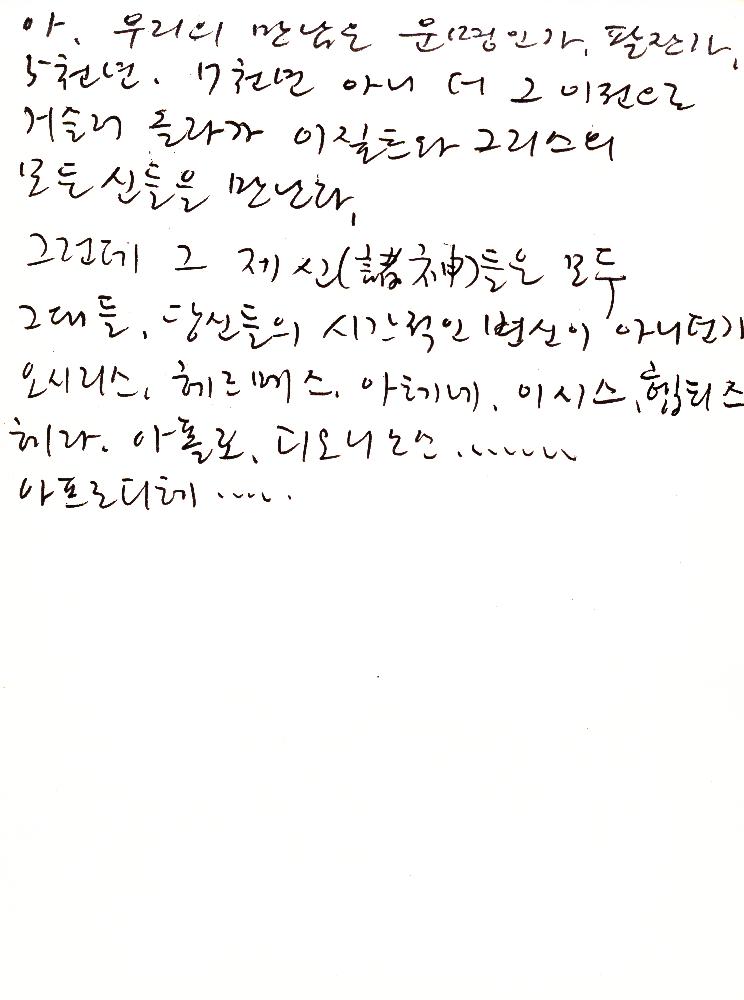 아, 우리의 만남은 운명인가, 팔잔가,
5천년. 7천년 아니 더 그 이전으로
거슬러 올라가 이집트와 그리스의
모든 신들을 만난다,
그런데 그 제신(諸神)들은 모두
그대들, 당신들의 시간적인 변신이 아니던가
오시리스, 헤르메스. 아테네, 이시스,
헤라. 아폴로, 디오니소스.......
아프로디테.....